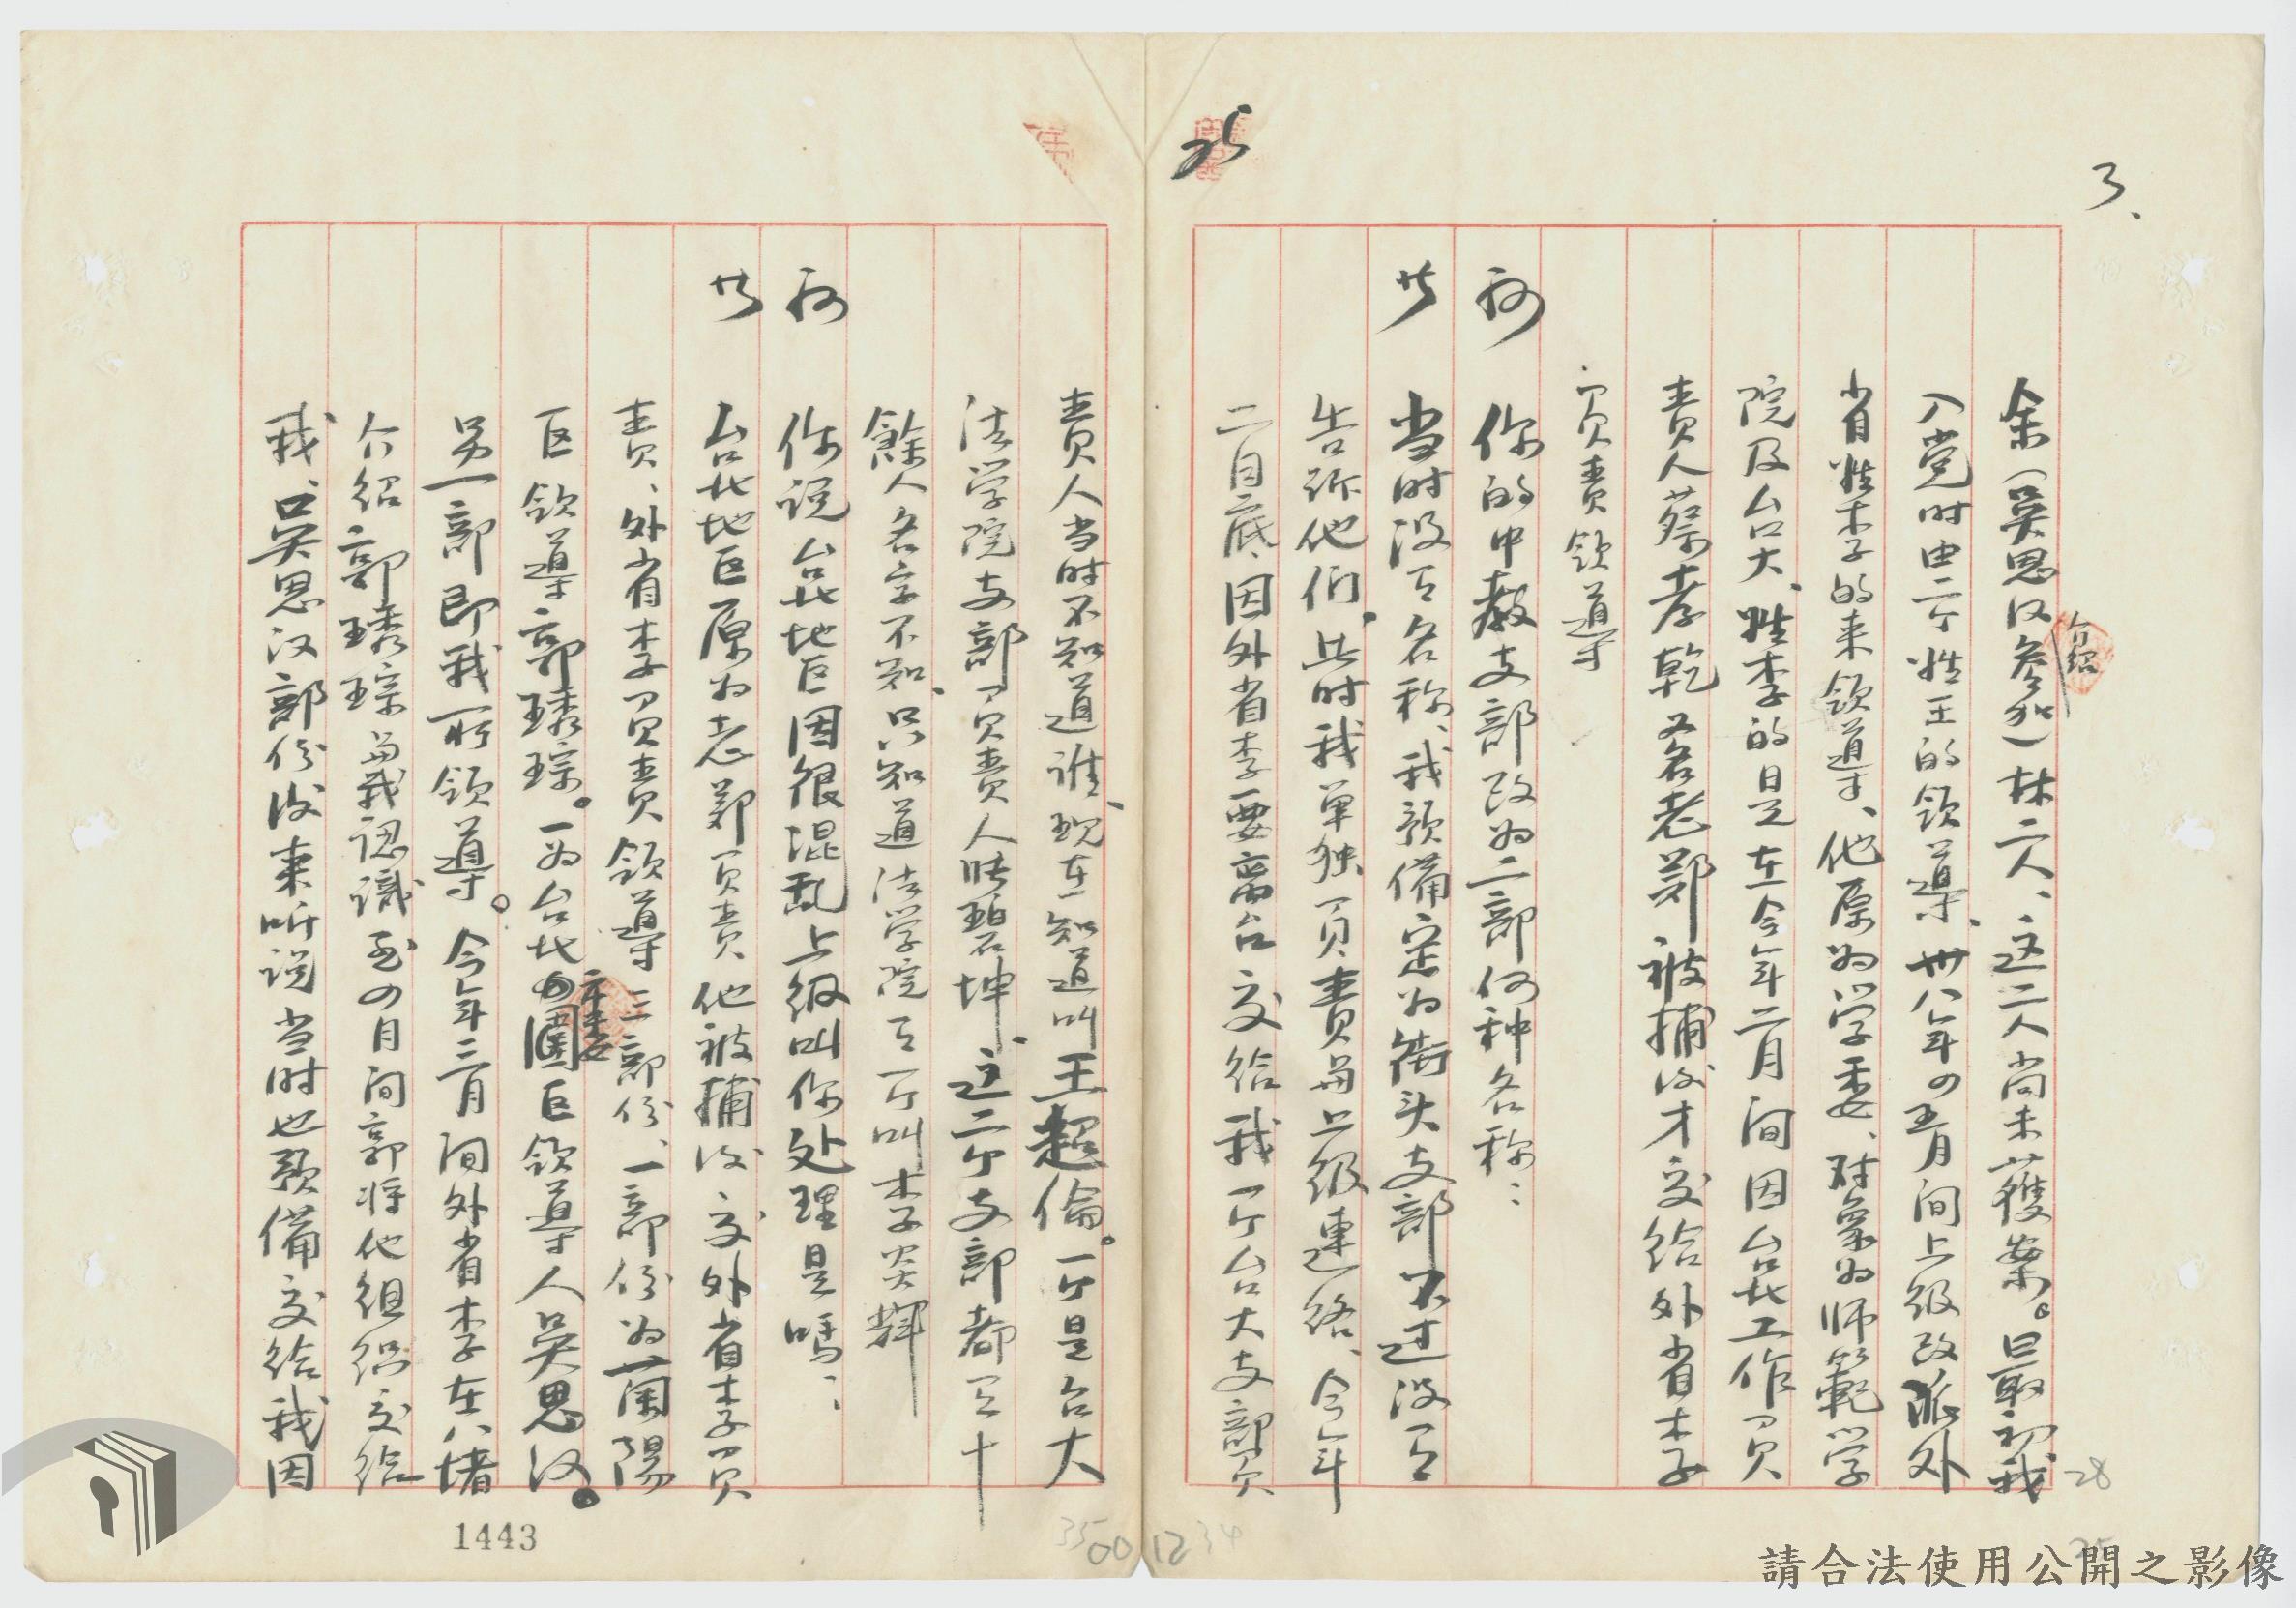 3、
25
余（吴思汉参加）林二人、这二人尚未獲案。曰最初我
介紹
入党时由一个姓王的领導、卅八年四五月间上级改派外
省姓李的来领導、他原为学委、対象为师範学
院及台大、姓李的是在今年二月间因台北工作负
責人蔡孝乾又名老郑被捕后才交给外省李
负責领導
问 你的中教支部改为二部何种名称：
供 当时没有名称、我预備定为街头支部不过没有
告诉他们。此时我单独负責与上级連络、今年
二月底、因外省李要离台交给我一个台大支部负
責人当时不知道谁、现在知道叫王超倫。一个是台大
法学院支部负責人陈碧坤、这二个支部都有十
餘人名字不知、只知道法学院有一个叫李炎輝
问 你说台北地区因很混乱上级叫你处理是嗎：
供 台北地区原为老郑负責他被捕后交外省李负
責、外省李负責领導三部份、一部份为蘭陽
区领導郭琇琮。一为台北市園区领導人吴思汉。
另一部即我所领導。今年三月间外省李在八堵
介绍郭琇琮与我認識到四月间郭将他组织交给
我、吴思汉部份後来听说当时也预備交给我因
1443
3500 1234
28
25
請合法使用公開之影像